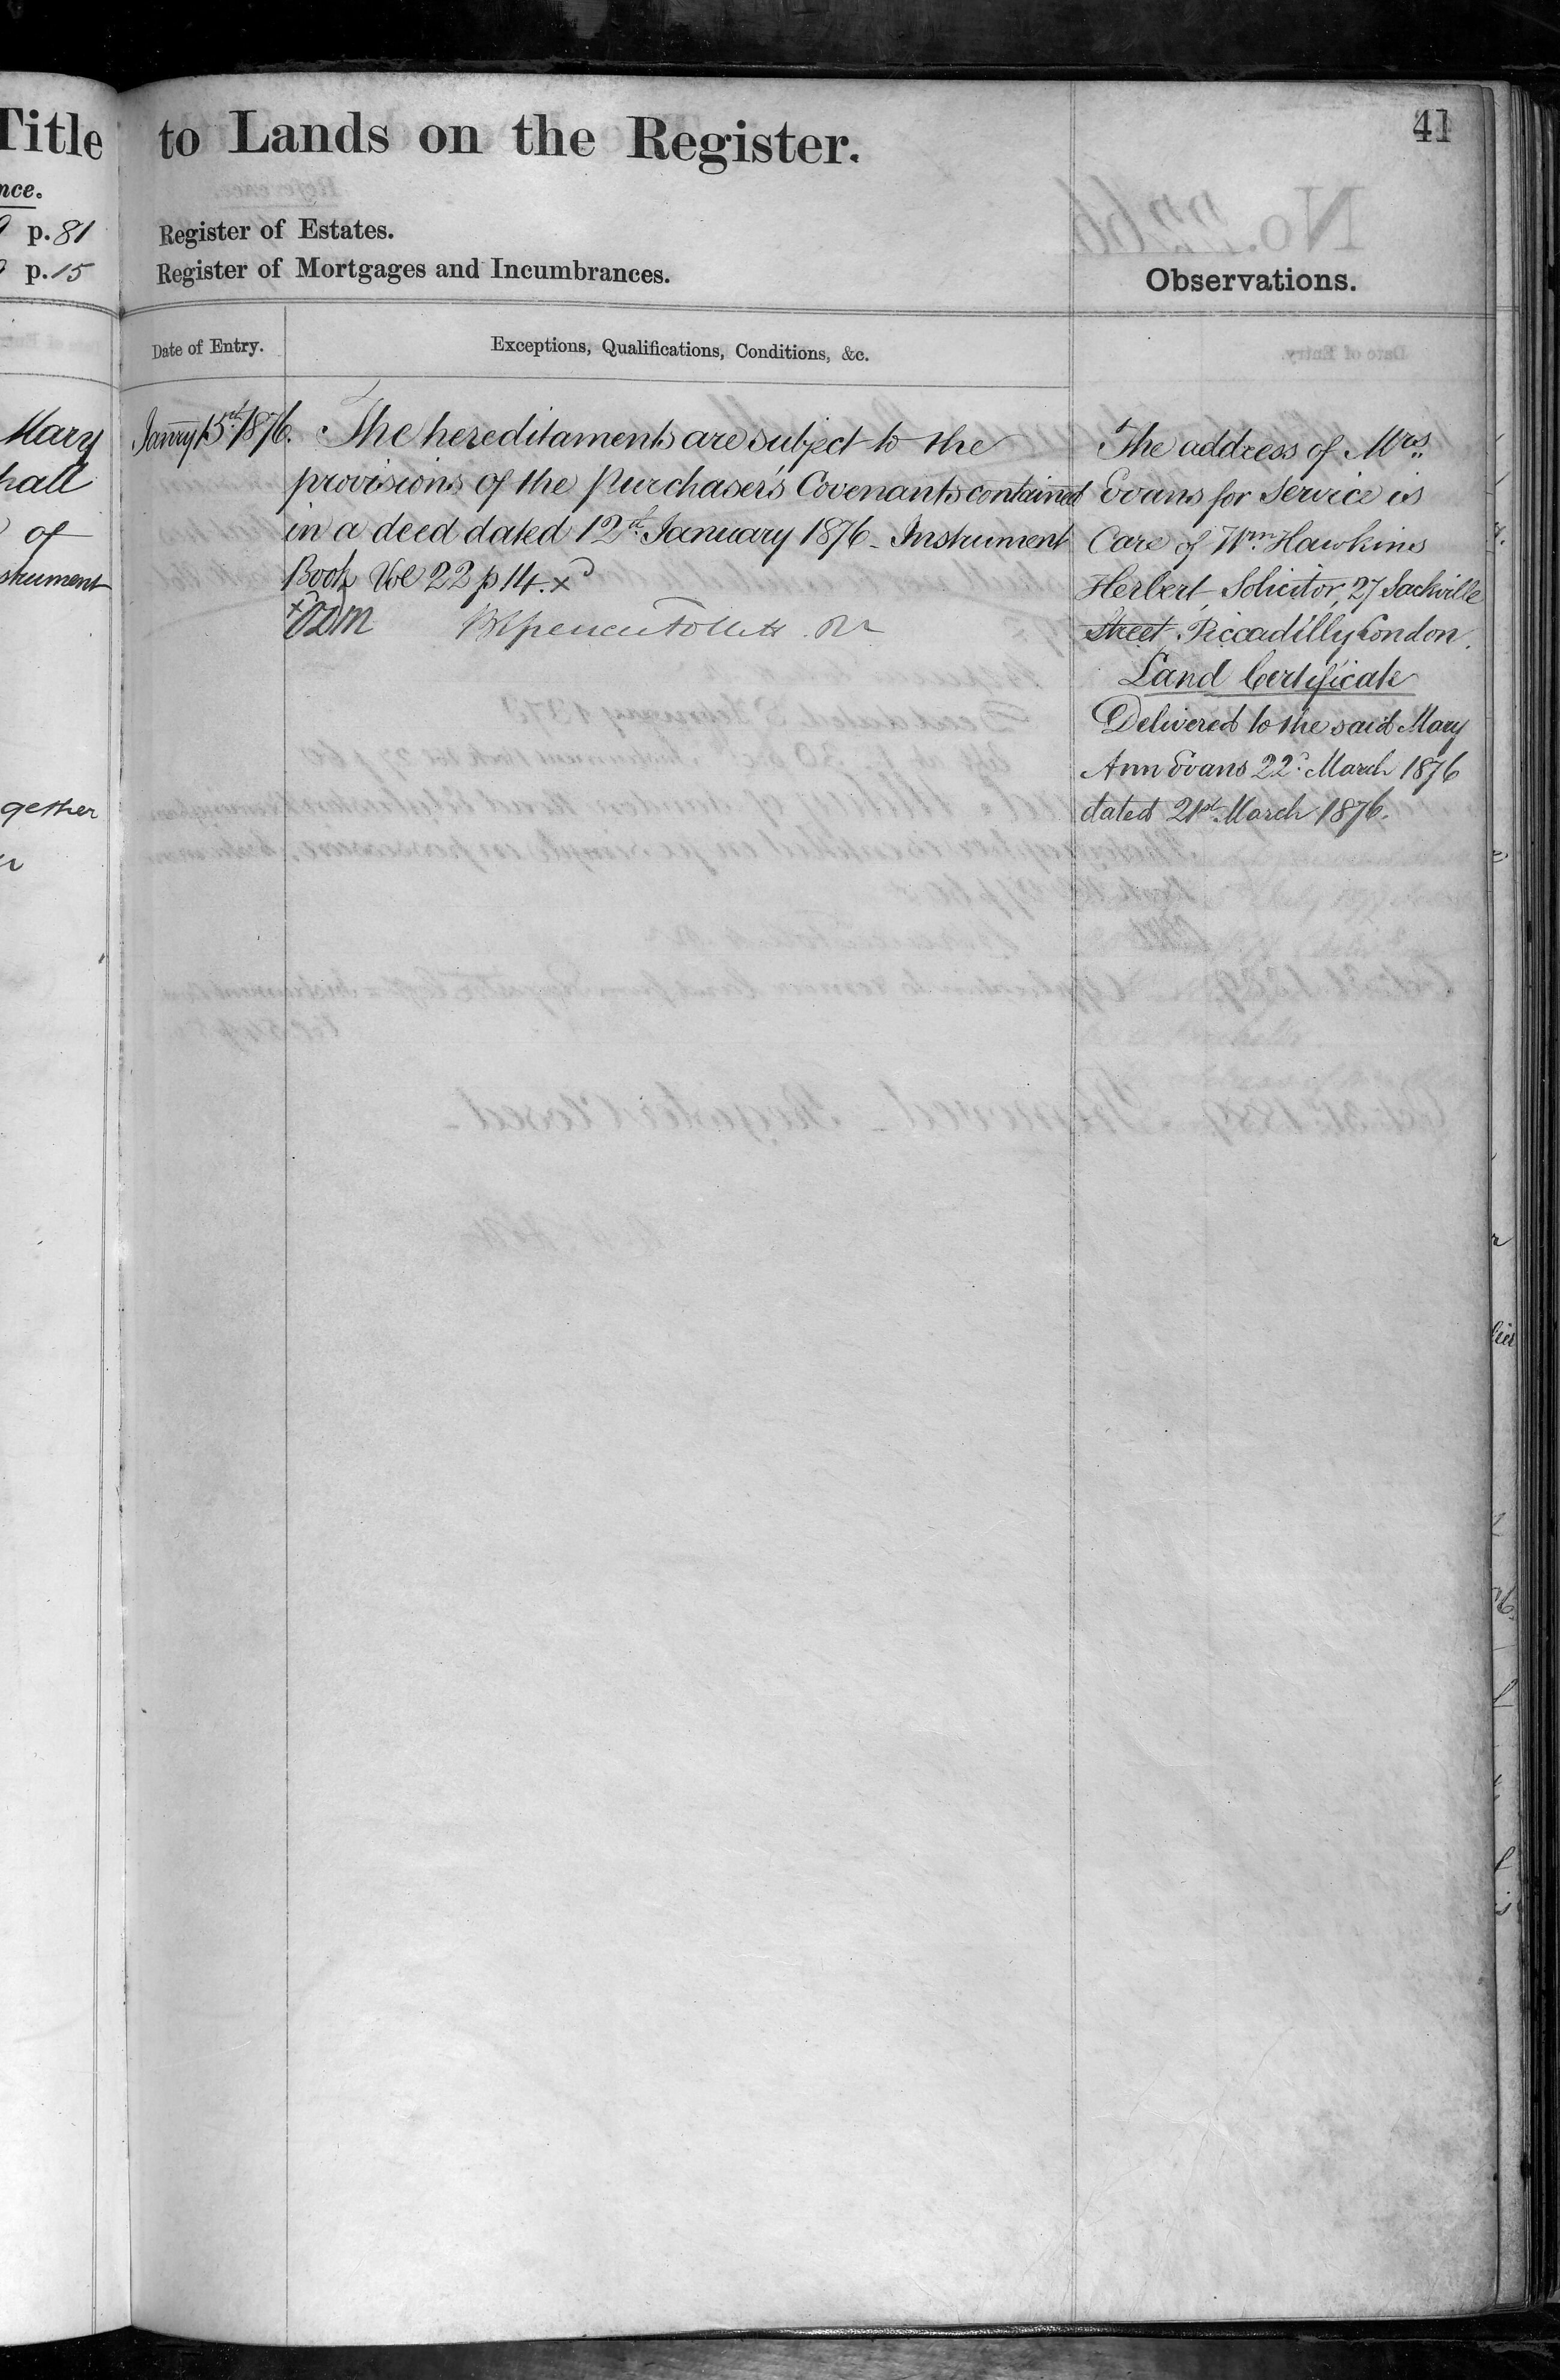 Title
nce.
p. 81
p. 15
Mary
hall
of
strument
gether
to Lands on the Register.
41
Register of Estates.
Register of Mortgages and Incumbrances.
Observations.
Date of Entry.
Exceptions, Qualifications, Conditions, &c.
1876. The hereditaments are subject to the
provisions of the Purchaser's Covenants contained
in a deed dated 12th January 1876 _ Instrument
Book Vol 22 p 14. x
The address of Mrs.
Evans for Service is
Care of Wm. Hawkins
Herbert, Solicitor, 27 Sackville
Street, Piccadilly London.
Land Certificate
Delivered to the said Mary
Ann Evans 22d. March 1876
dated 21st. March 1876.